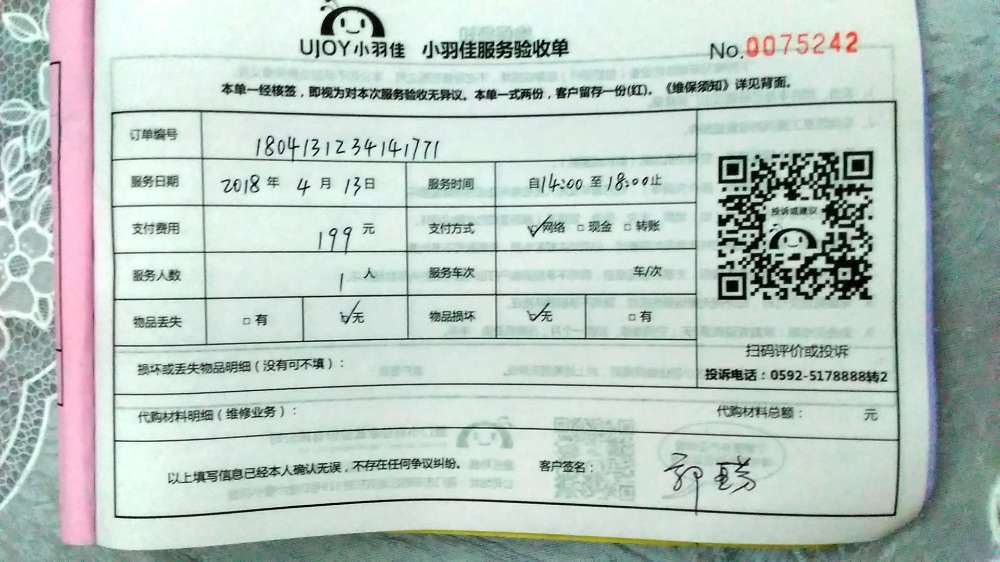 UJOY小羽佳 小羽佳服务验收单
No.0075242
本单一经核签,即视为对本次服务验收无异议。本单一式两份,客户留存一份(红)。《维保须知》详见背面。
订单编号 1804131234141771
服务日期 2018年4月13日 服务时间 自14:00至18:00止
支付费用 199元 支付方式 ☑网络 □现金 □转账
服务人数 1人 服务车次 车/次
物品丢失 □有 ☑无 物品损坏 ☑无 □有
投诉或建议
扫码评价或投诉
投诉电话:0592-5178888转2
损坏或丢失物品明细(没有可不填):
代购材料明细(维修业务): 代购材料总额: 元
以上填写信息已经本人确认无误,不存在任何争议纠纷。 客户签名: